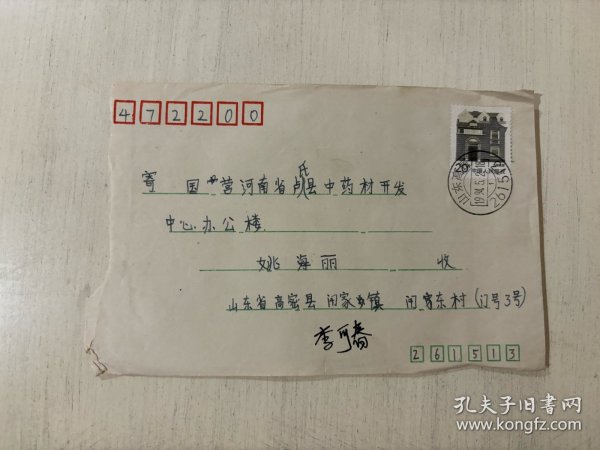 472200
寄 国营河南省卢氏县中药材开发
中心办公楼
姚海丽 收
山东省高密县闫家乡镇 闫家东村(门号3号)
李可喬
261513
山东高密
1994.5.2
2615
孔夫子旧书网
www.kongfz.com